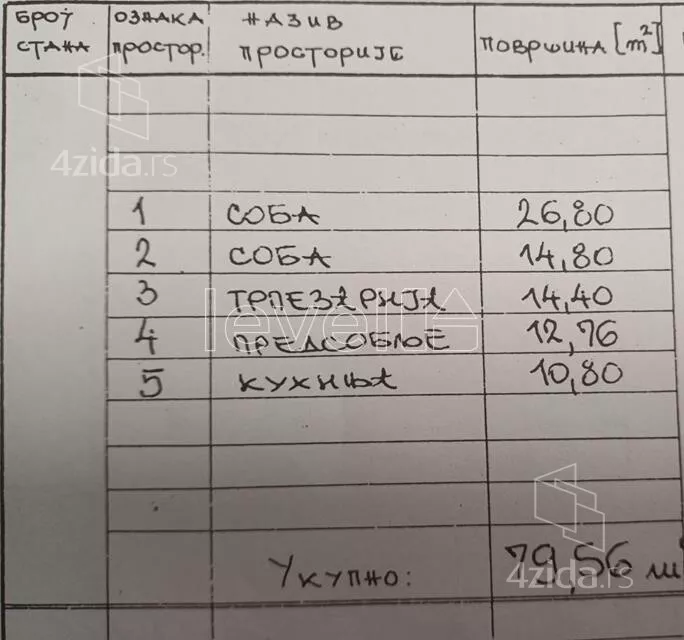 БРОЈ СТАНА
ОЗНАКА ПРОСТОР.
НАЗИВ ПРОСТОРИЈЕ
ПОВРШИНА [m²]
4zida.rs
1 СОБА 26,80
2 СОБА 14,80
3 ТРПЕЗАРИЈА 14,40
level
4 ПРЕДСОБЉЕ 12,76
5 КУХИЊА 10,80
Укупно: 79,56 м
4zida.rs